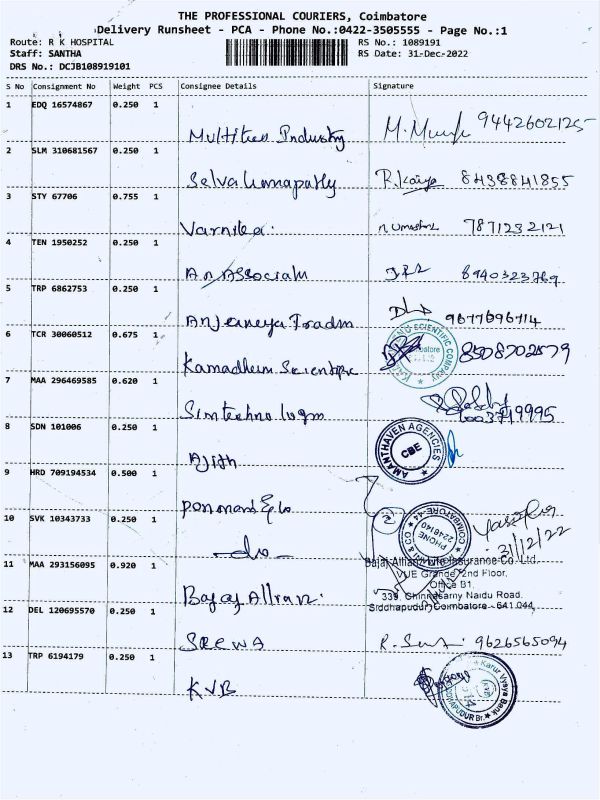 THE PROFESSIONAL COURIERS, Coimbatore
Delivery Runsheet - PCA - Phone No.:0422-3505555 - Page No.:1
Route: R K HOSPITAL RS No.: 1089191
Staff: SANTHA RS Date: 31-Dec-2022
DRS No.: DCJB108919101
S No Consignment No Weight PCS Consignee Details Signature
1 EDQ 16574867 0.250 1
Multitech Industry 9442602125
2 SLM 310681567 0.250 1
Selvaganapathy 8438841855
3 STY 67706 0.755 1
Varnika 7871232121
4 TEN 1950252 0.250 1
An Associats 8940323769
5 TRP 6862753 0.250 1
Anjaneya Tradin 9677696714
6 TCR 30060512 0.675 1
SCIENTIFIC COMPANY
Kamadhenu Scientific 8508702579
7 MAA 296469585 0.620 1
Simtechnologys
8 SDN 101006 0.250 1
AMANTHAVEN AGENCIES
CBE
Ajith
9 HRD 709194534 0.500 1
Ponmani & Co
10 SVK 10343733 0.250 1
COIMBATORE-44
PHONE
2246140
-do- 31/12/22
11 MAA 293156095 0.920 1
Bajaj Allianz Life Insurance Co. Ltd.
VUE Grande, 2nd Floor,
Office B1,
339, Chinnasamy Naidu Road.
Siddhapudur, Coimbatore - 641 044.
Bajaj Allianz
12 DEL 120695570 0.250 1
SREWA 9626565094
13 TRP 6194179 0.250 1
Karur Vysya Bank
KVB